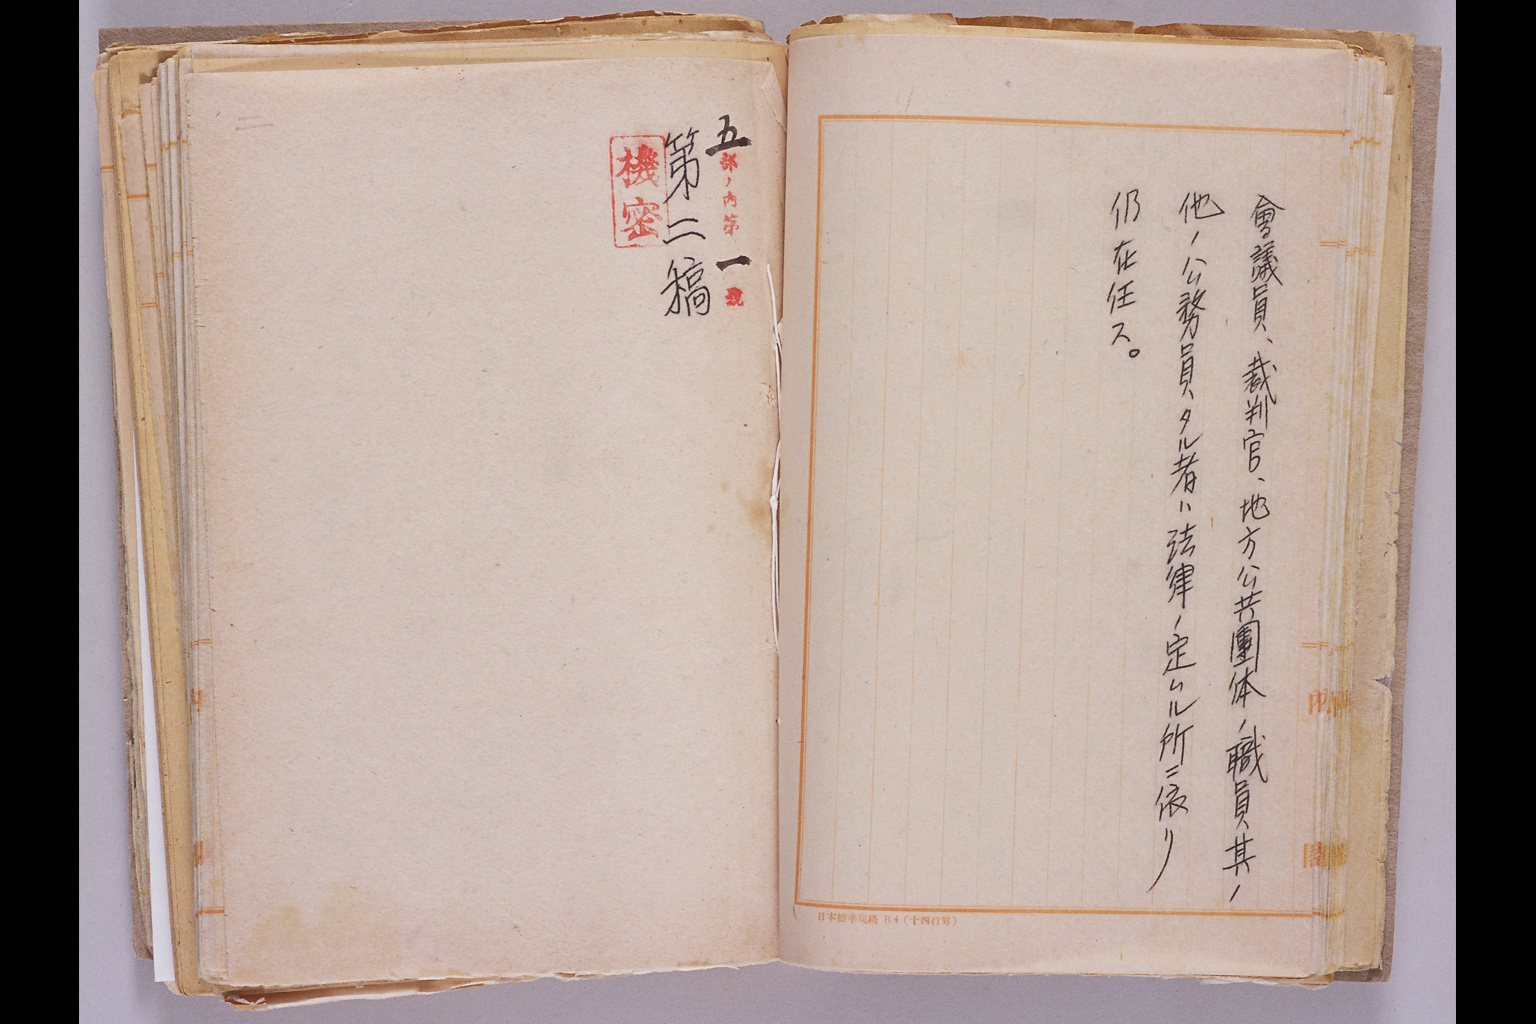 會議員、裁判官、地方公共團体ノ職員其ノ
他ノ公務員タル者ハ法律ノ定ムル所ニ依リ
仍在任ス。
日本標準規格 B4 (十四行罫)
五部ノ内第一號
第二稿
機密
二